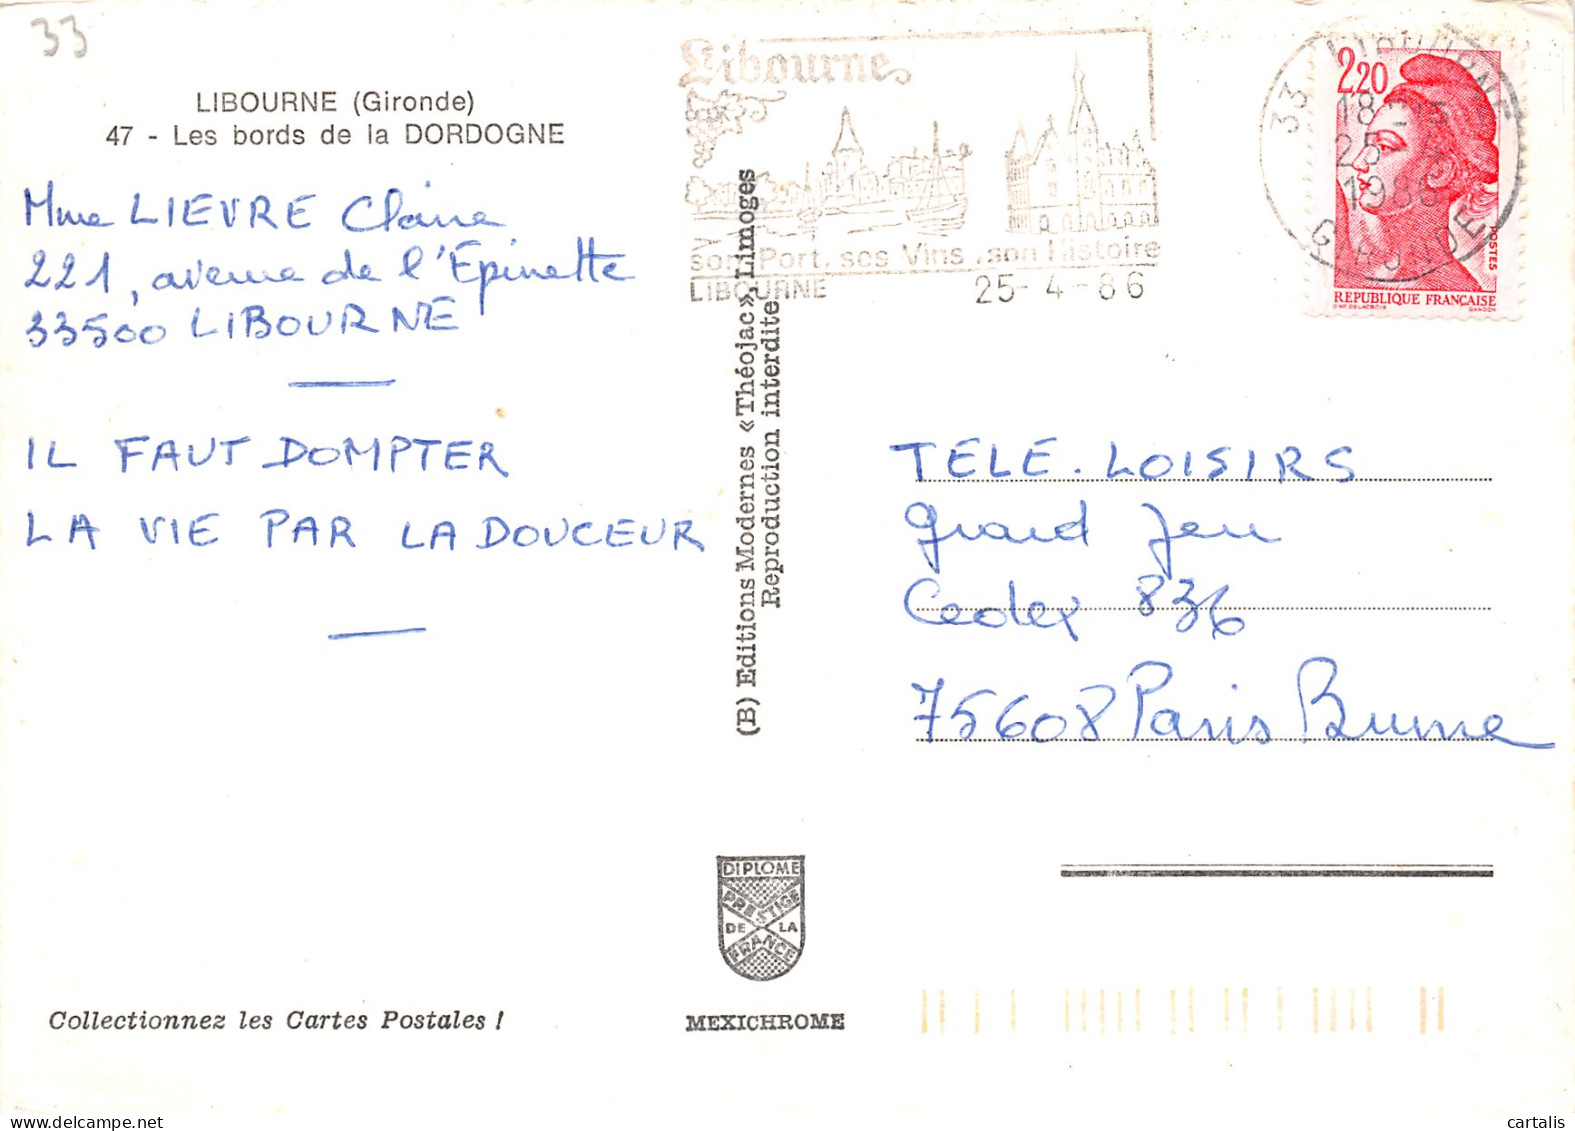 33
LIBOURNE (Gironde)
47 - Les bords de la DORDOGNE
Mme LIEVRE Claire
221, avenue de l'Epinette
33500 LIBOURNE
IL FAUT DOMPTER
LA VIE PAR LA DOUCEUR
Collectionnez les Cartes Postales !
(B) Editions Modernes « Théojac », Limoges
Reproduction interdite
DIPLOME
PRESTIGE
DE LA
FRANCE
MEXICHROME
Libourne
son Port, ses Vins, son Histoire
LIBOURNE 25-4-86
33 LIBOURNE
18
25
1986
GIRONDE
2,20
POSTES
REPUBLIQUE FRANÇAISE
D'AP. DELACROIX GANDON
TELE-LOISIRS
Grand Jeu
Cedex 836
75608 Paris Brune
cartalis